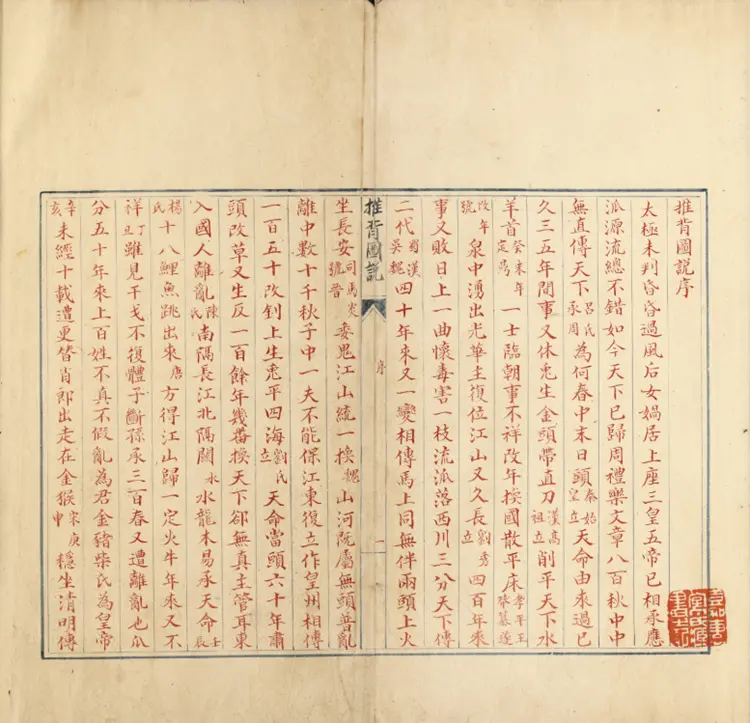 推背圖說序
太極未判昏昏過風后女媧居上座三皇五帝已相承應
派源流總不錯如今天下已歸周禮樂文章八百秋中中
無直傳天下呂氏承周為何春中末日頭秦始皇立天命由來過已
久三五年間事又休兎生金頭帶直刀漢高祖立削平天下水
羊首癸未年定為一士臨朝事不祥改年換國散平床孝平王莽篡逆
改年號泉中湧出光華主復位江山又久長劉秀立四百年來
事又敗日上一曲懷毒害一枝流派落西川三分天下傳
二代蜀漢吳魏四十年來又一變相傳馬上同無伴兩頭上火
推背圖說
序
一
坐長安司馬炎號晉委鬼江山統一換魏山河既屬無頭普亂
離中數十千秋子中一夫不能保江東復立作皇州相傳
一百五十改釗上生兎平四海劉氏立天命當頭六十年肅
頭改草又生反一百餘年幾番換天下卻無真主管耳東
入國人離亂陳氏南隅長江北隔關水水龍木易承天命壬辰
楊氏十八鯉魚跳出來唐方得江山歸一定火牛年來又不
祥丁丑雖見干戈不復體子斷孫承三百春又遭離亂也瓜
分五十年來上百姓不真不假亂為君金豬柴氏為皇帝
辛亥未經十載遭更替肖郎出走在金猴宋庚申穩坐清明傳